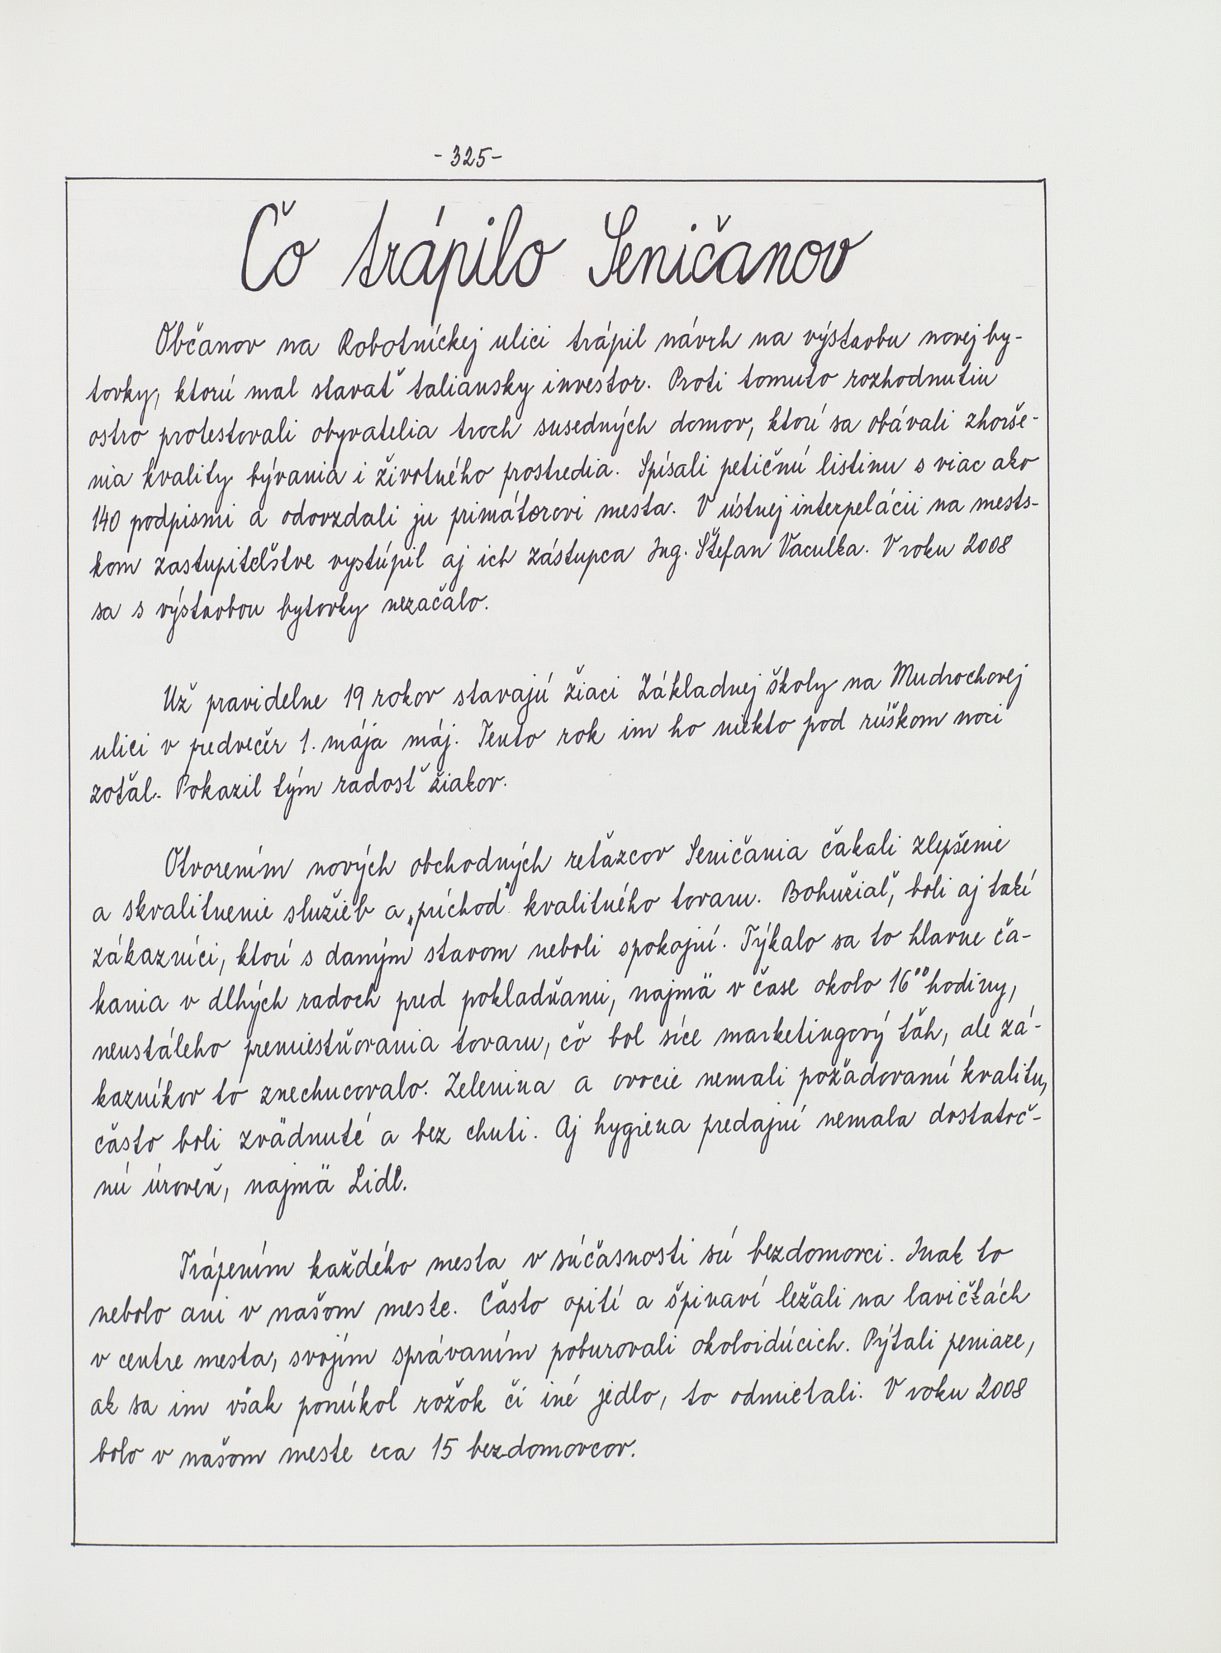 -325-
Čo trápilo Seničanov
Občanov na Robotníckej ulici trápil návrh na výstavbu novej by-
tovky, ktorú mal stavať taliansky investor. Proti tomuto rozhodnutiu
ostro protestovali obyvatelia troch susedných domov, ktorí sa obávali zhorše-
nia kvality bývania i životného prostredia. Spísali petičnú listinu s viac ako
140 podpismi a odovzdali ju primátorovi mesta. V ústnej interpelácii na mests-
kom zastupiteľstve vystúpil aj ich zástupca Ing. Štefan Vaculka. V roku 2008
sa s výstavbou bytovky nezačalo.
Už pravidelne 19 rokov stavajú žiaci Základnej školy na Mudrochovej
ulici v predvečer 1. mája máj. Tento rok im ho niekto pod rúškom noci
zoťal. Pokazil tým radosť žiakov.
Otvorením nových obchodných reťazcov Seničania čakali zlepšenie
a skvalitnenie služieb a „príchod" kvalitného tovaru. Bohužiaľ, boli aj takí
zákazníci, ktorí s daným stavom neboli spokojní. Týkalo sa to hlavne ča-
kania v dlhých radoch pred pokladňami, najmä v čase okolo 16⁰⁰ hodiny,
neustáleho premiestňovania tovaru, čo bol síce marketingový ťah, ale zá-
kazníkov to znechucovalo. Zelenina a ovocie nemali požadovanú kvalitu,
často boli zvädnuté a bez chuti. Aj hygiena predajní nemala dostatoč-
nú úroveň, najmä Lidl.
Trápením každého mesta v súčasnosti sú bezdomovci. Inak to
nebolo ani v našom meste. Často opití a špinaví ležali na lavičkách
v centre mesta, svojím správaním poburovali okoloidúcich. Pýtali peniaze,
ak sa im však ponúkol rožok či iné jedlo, to odmietali. V roku 2008
bolo v našom meste cca 15 bezdomovcov.